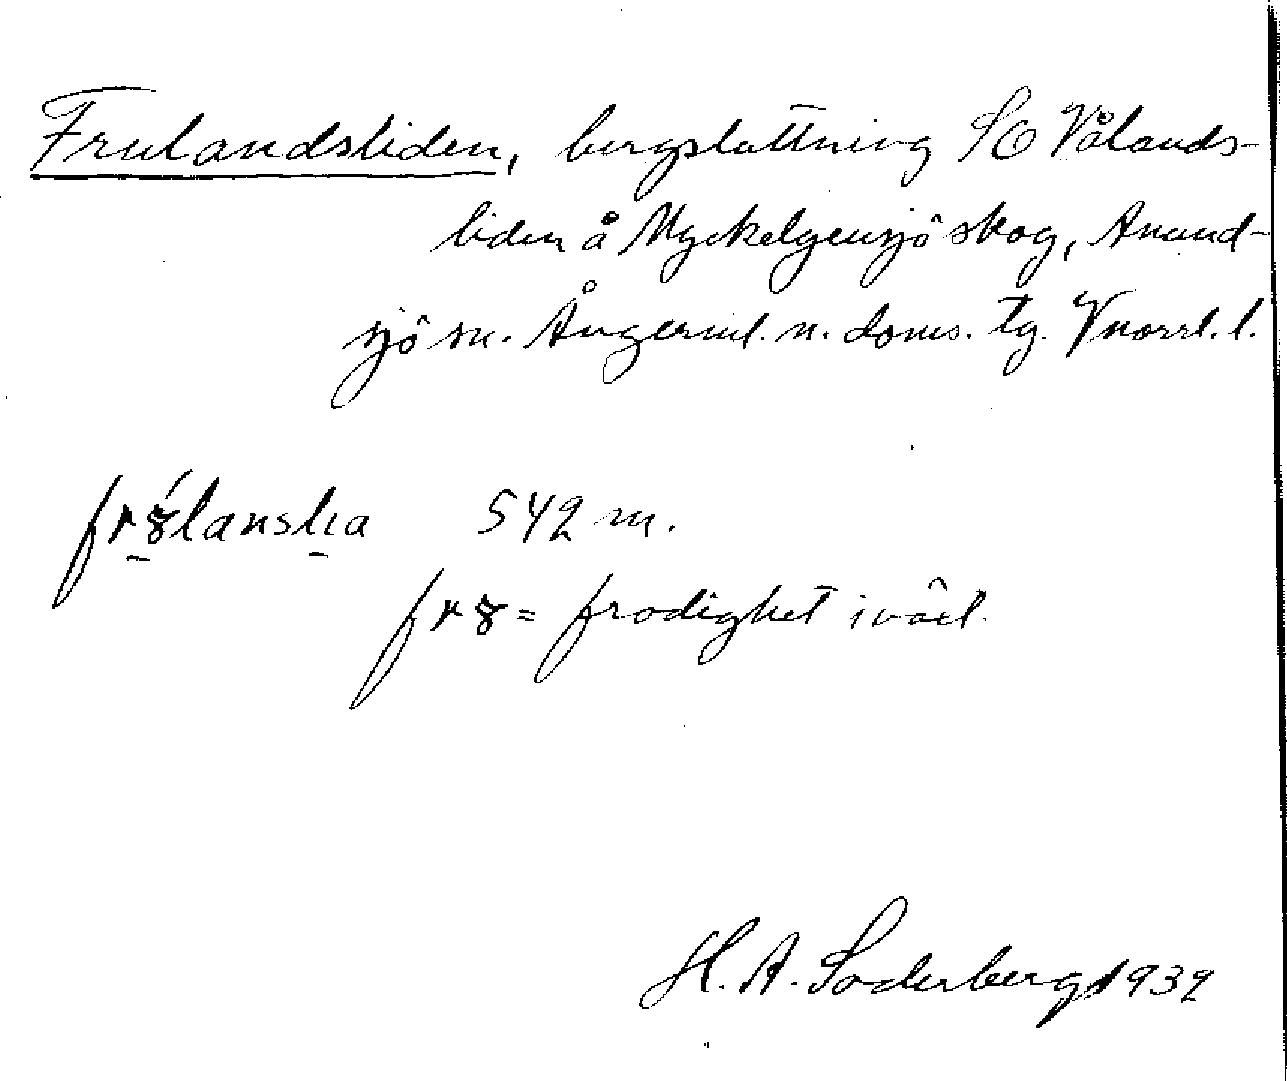 Frulandsliden, bergsluttning SO Vålands-
liden å Myckelgensjö skog, Anund-
sjö sn. Ångerml. n. doms. tg. Vnorrl. l.
542 m.
= frodighet i växtl.
H. A. Söderberg 1939